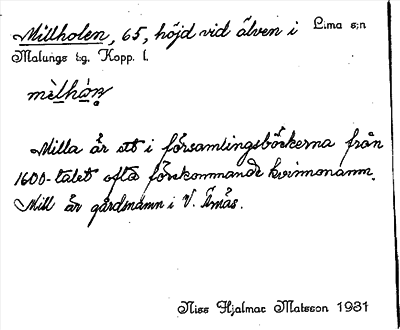 Millholen, 65, höjd vid älven i Lima s:n
Malungs tg. Kopp. l.
mèlhán
Milla är ett i församlingsböckerna från
1600-talet ofta förekommande kvinnonamn.
Mill är gårdsnamn i V. Ärnäs.
Niss Hjalmar Matsson 1931